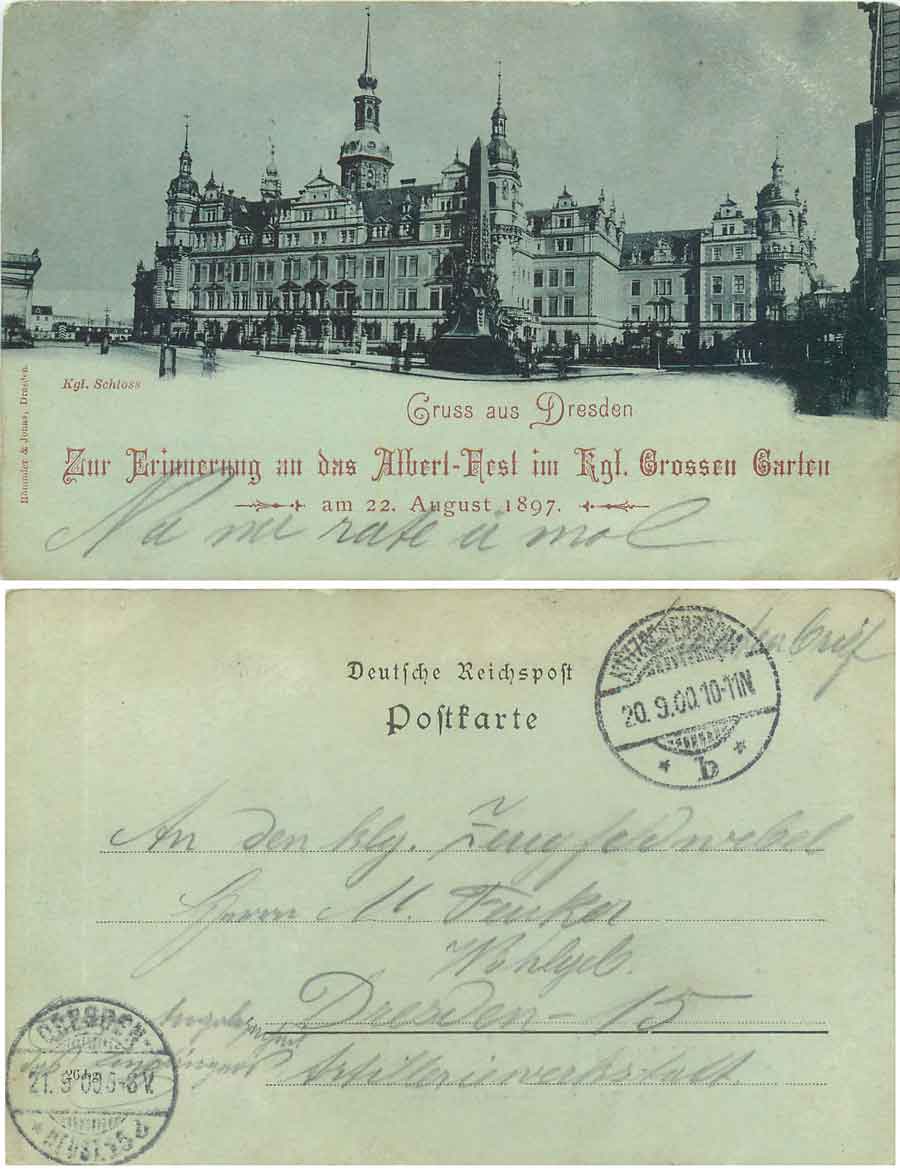 Kgl. Schloss
Gruss aus Dresden
Zur Erinnerung an das Albert-Fest im Kgl. Grossen Garten
am 22. August 1897.
Römmler & Jonas, Dresden.
Na nu rate a mol
Soldatenbrief
Deutsche Reichspost
Postkarte
20.9.00.10-11N
* b *
An den klg. Zeugfeldwebel
Herrn M.
Wohlgeb.
Dresden-15
Artilleriewerkstatt.
DRESDEN-
21.9.00.